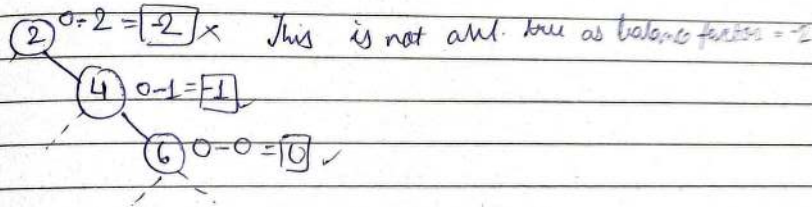 2 0-2 = -2 × This is not avl. tree as balance factor = -2
4 0-1 = -1 ✓
6 0-0 = 0 ✓